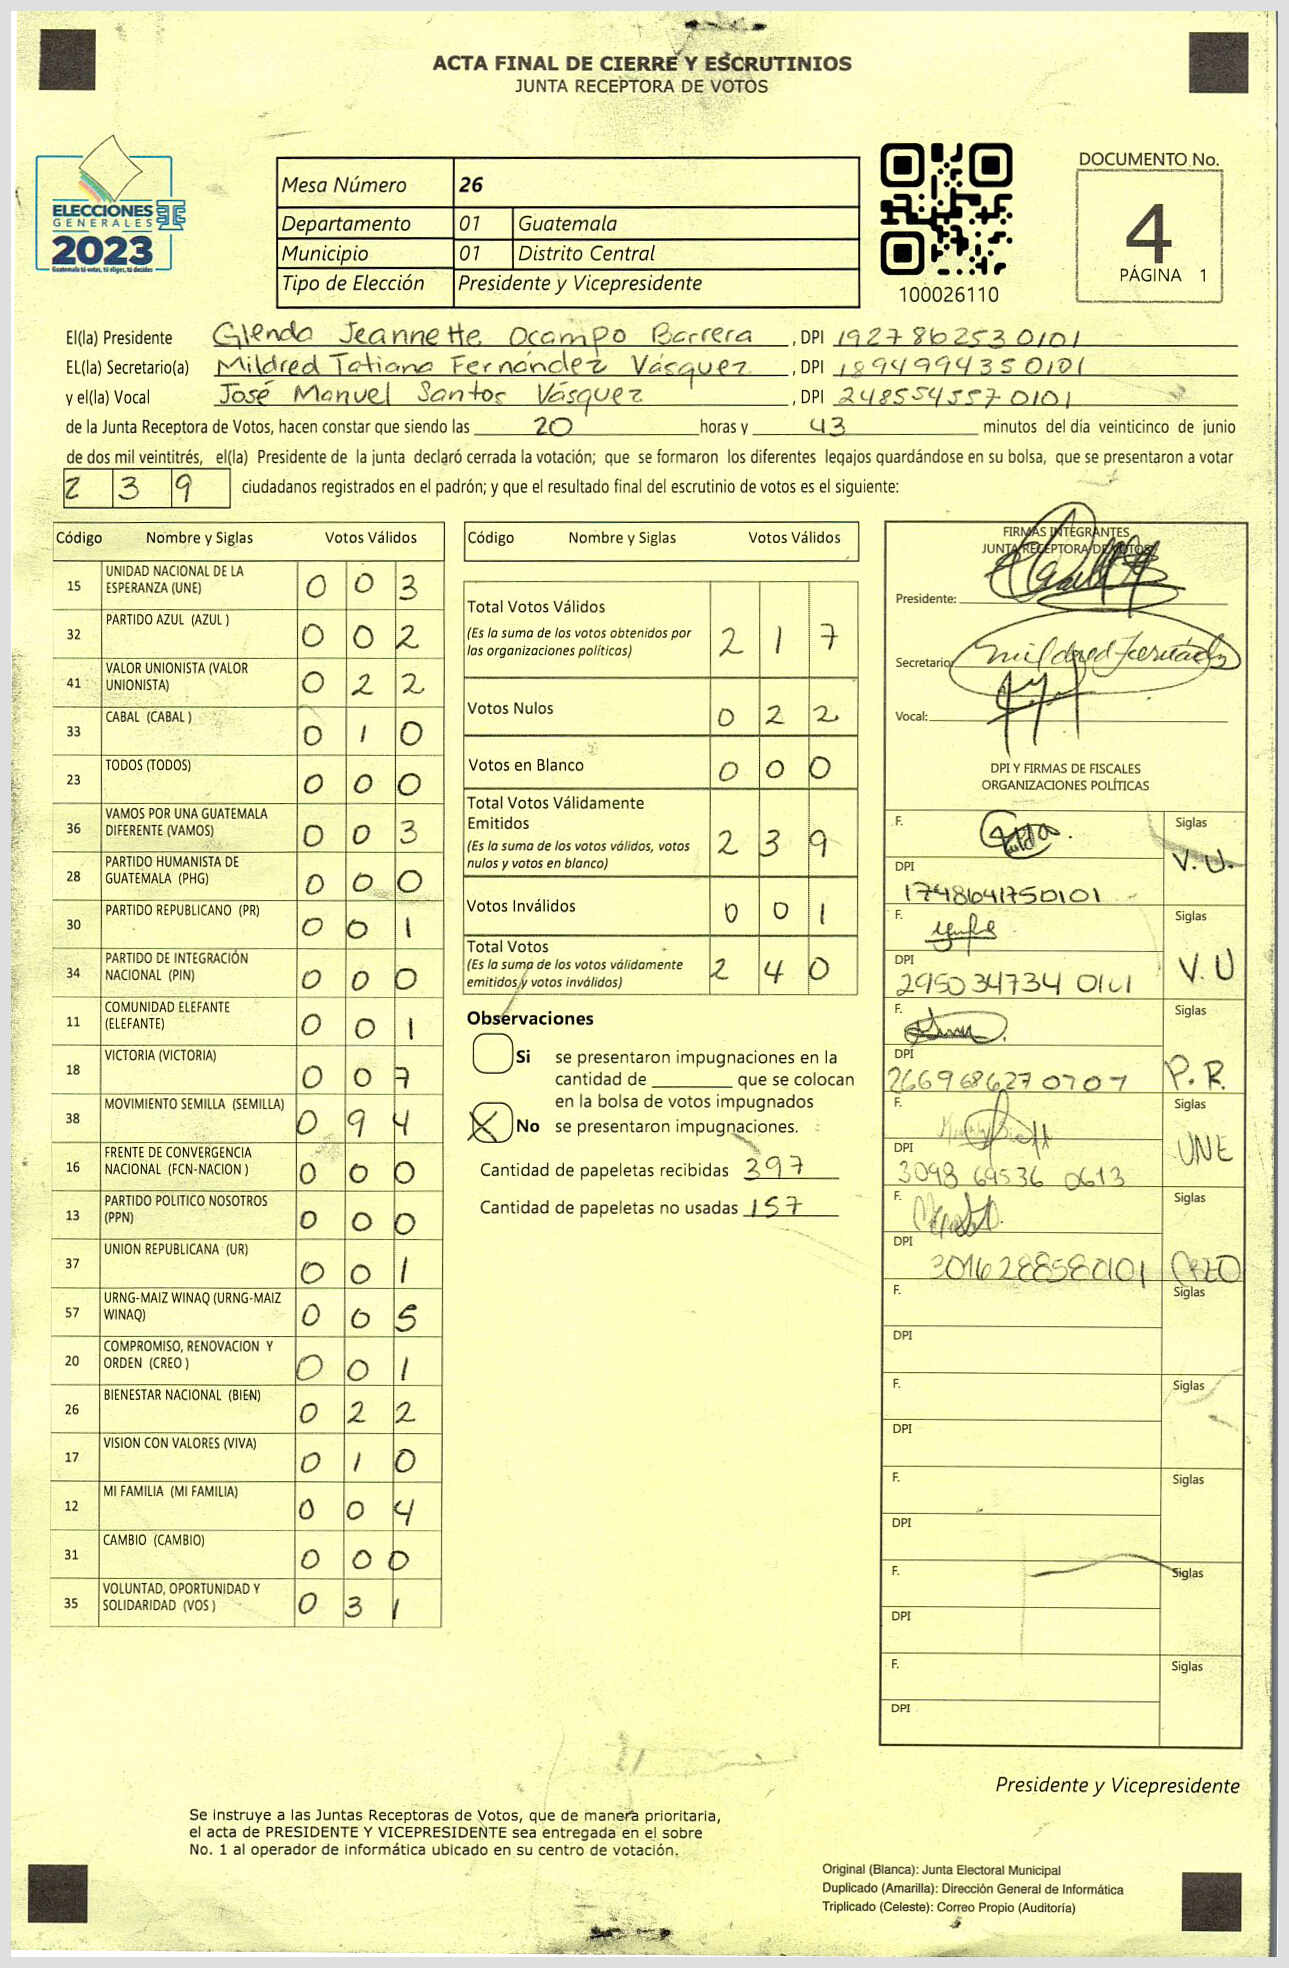 ACTA FINAL DE CIERRE Y ESCRUTINIOS
JUNTA RECEPTORA DE VOTOS
ELECCIONES
GENERALES
2023
Guatemala tú votas, tú eliges, tú decides
Mesa Número 26
Departamento 01 Guatemala
Municipio 01 Distrito Central
Tipo de Elección Presidente y Vicepresidente
100026110
DOCUMENTO No.
4
PÁGINA 1
El(la) Presidente Glenda Jeannette Ocampo Barrera , DPI 1927862530101
EL(la) Secretario(a) Mildred Tatiana Fernández Vásquez , DPI 1894994350101
y el(la) Vocal José Manuel Santos Vásquez , DPI 2485545570101
de la Junta Receptora de Votos, hacen constar que siendo las 20 horas y 43 minutos del día veinticinco de junio
de dos mil veintitrés, el(la) Presidente de la junta declaró cerrada la votación; que se formaron los diferentes legajos guardándose en su bolsa, que se presentaron a votar
2 3 9 ciudadanos registrados en el padrón; y que el resultado final del escrutinio de votos es el siguiente:
Código Nombre y Siglas Votos Válidos
15 UNIDAD NACIONAL DE LA ESPERANZA (UNE) 0 0 3
32 PARTIDO AZUL (AZUL ) 0 0 2
41 VALOR UNIONISTA (VALOR UNIONISTA) 0 2 2
33 CABAL (CABAL ) 0 1 0
23 TODOS (TODOS) 0 0 0
36 VAMOS POR UNA GUATEMALA DIFERENTE (VAMOS) 0 0 3
28 PARTIDO HUMANISTA DE GUATEMALA (PHG) 0 0 0
30 PARTIDO REPUBLICANO (PR) 0 0 1
34 PARTIDO DE INTEGRACIÓN NACIONAL (PIN) 0 0 0
11 COMUNIDAD ELEFANTE (ELEFANTE) 0 0 1
18 VICTORIA (VICTORIA) 0 0 7
38 MOVIMIENTO SEMILLA (SEMILLA) 0 9 4
16 FRENTE DE CONVERGENCIA NACIONAL (FCN-NACION ) 0 0 0
13 PARTIDO POLITICO NOSOTROS (PPN) 0 0 0
37 UNION REPUBLICANA (UR) 0 0 1
57 URNG-MAIZ WINAQ (URNG-MAIZ WINAQ) 0 0 5
20 COMPROMISO, RENOVACION Y ORDEN (CREO ) 0 0 1
26 BIENESTAR NACIONAL (BIEN) 0 2 2
17 VISION CON VALORES (VIVA) 0 1 0
12 MI FAMILIA (MI FAMILIA) 0 0 4
31 CAMBIO (CAMBIO) 0 0 0
35 VOLUNTAD, OPORTUNIDAD Y SOLIDARIDAD (VOS ) 0 3 1
Código Nombre y Siglas Votos Válidos
Total Votos Válidos
(Es la suma de los votos obtenidos por
las organizaciones políticas) 2 1 7
Votos Nulos 0 2 2
Votos en Blanco 0 0 0
Total Votos Válidamente
Emitidos
(Es la suma de los votos válidos, votos
nulos y votos en blanco) 2 3 9
Votos Inválidos 0 0 1
Total Votos
(Es la suma de los votos válidamente
emitidos y votos inválidos) 2 4 0
Observaciones
Si se presentaron impugnaciones en la
cantidad de ________ que se colocan
en la bolsa de votos impugnados
X No se presentaron impugnaciones.
Cantidad de papeletas recibidas 397
Cantidad de papeletas no usadas 157
FIRMAS INTEGRANTES
JUNTA RECEPTORA DE VOTOS
Presidente:
Secretario: Mildred Fernández
Vocal:
DPI Y FIRMAS DE FISCALES
ORGANIZACIONES POLÍTICAS
F. Siglas V. U.
DPI 1748641750101
F. Siglas V. U
DPI 2950347340101
F. Siglas P. R.
DPI 2669686270707
F. Siglas UNE
DPI 3098 69536 0613
F. Siglas CREO
DPI 3016288580101
F. Siglas
DPI
F. Siglas
DPI
F. Siglas
DPI
F. Siglas
DPI
F. Siglas
DPI
Presidente y Vicepresidente
Se instruye a las Juntas Receptoras de Votos, que de manera prioritaria,
el acta de PRESIDENTE Y VICEPRESIDENTE sea entregada en el sobre
No. 1 al operador de informática ubicado en su centro de votación.
Original (Blanca): Junta Electoral Municipal
Duplicado (Amarilla): Dirección General de Informática
Triplicado (Celeste): Correo Propio (Auditoría)